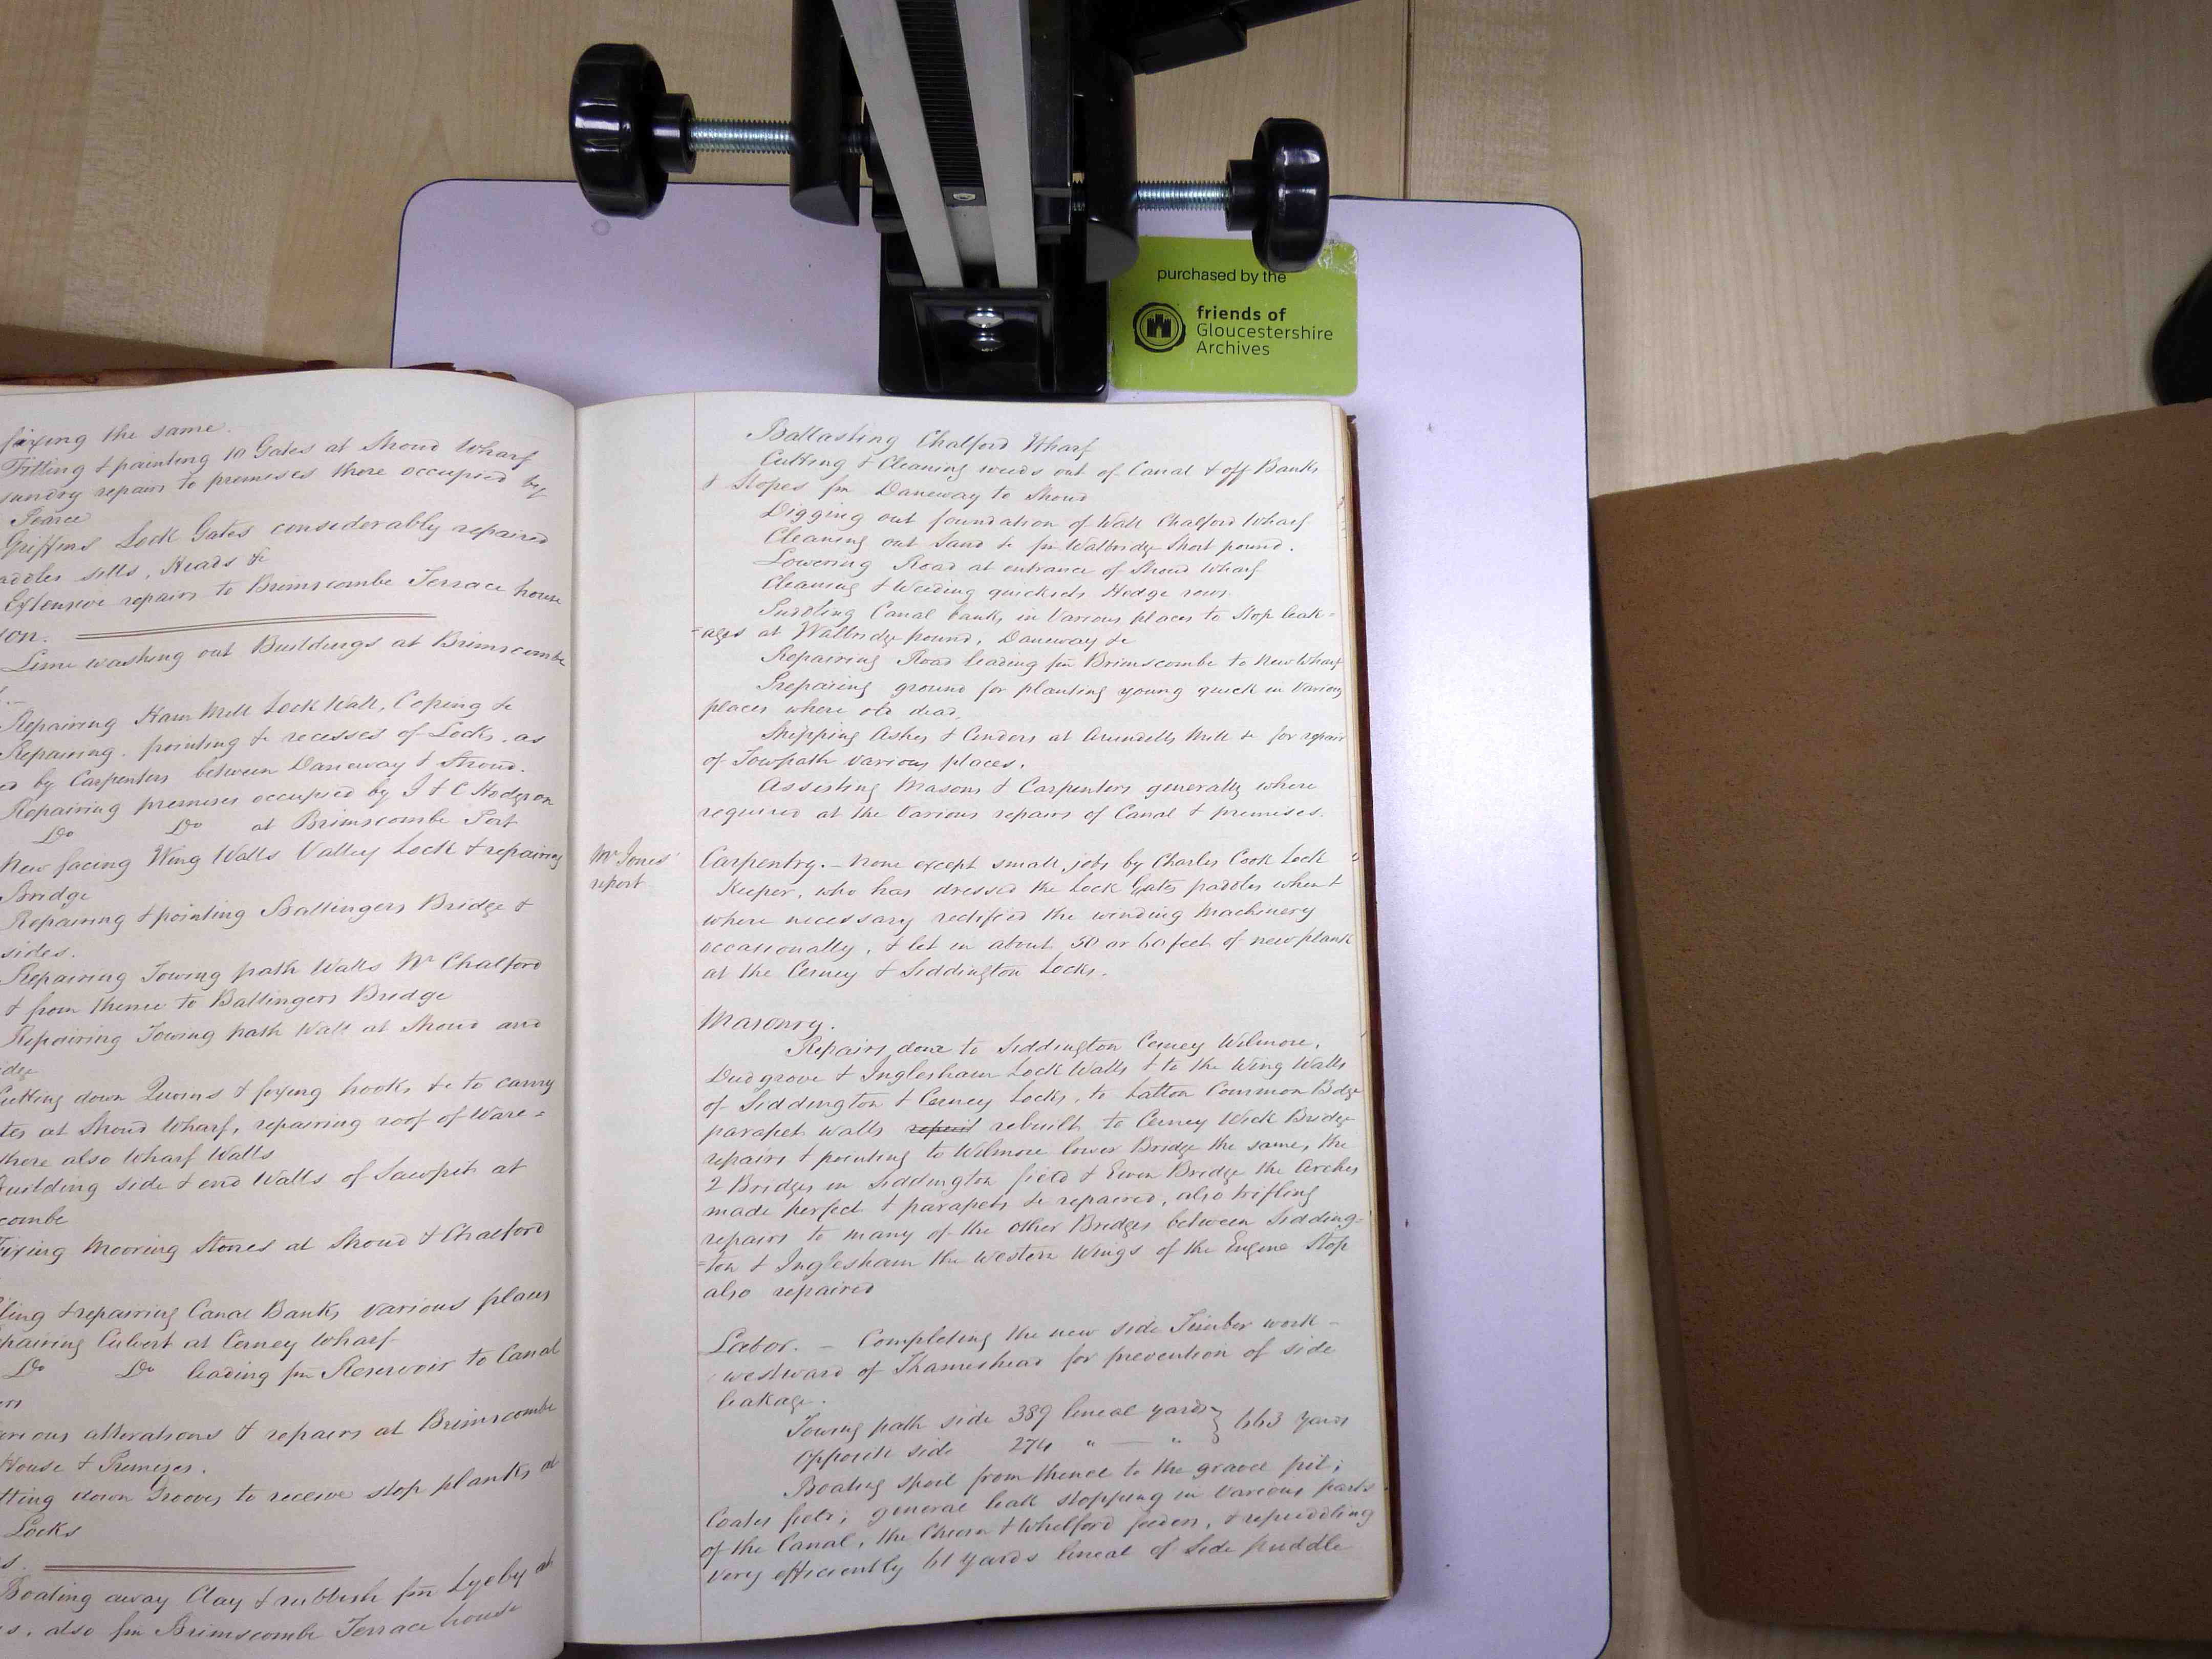 purchased by the
friends of
Gloucestershire
Archives
fixing the same.
Fitting & painting 10 Gates at Stroud Wharf
sundry repairs to premises there occupied by
Pearce
Griffins Lock Gates considerably repaired
addles sills, Heads &c
Extensive repairs to Brimscombe Terrace house
ion.
Lime washing out Buildings at Brimscombe
Repairing Ham Mill Lock Wall, Coping &c
Repairing, pointing &c recesses of Locks, as
ed by Carpenters between Daneway & Stroud.
Repairing premises occupied by J & C Hodgson
Do Do at Brimscombe Port
New facing Wing Walls Valley Lock & repairing
Bridge
Repairing & pointing Ballingers Bridge &
sides.
Repairing Towing path Walls Nr Chalford
& from thence to Ballingers Bridge
Repairing Towing path Wall at Stroud and
idge
Cutting down Quoins & fixing hooks &c to carry
tes at Stroud Wharf, repairing roof of Ware=
there also Wharf Walls
Building side & end Walls of Sawpit at
combe
Fixing Mooring Stones at Stroud & Chalford
ling & repairing Canal Banks various places
epairing Culvert at Cerney Wharf
Do Do leading fm Reservoir to Canal
on
arious alterations & repairs at Brimscombe
House & Premises.
tting down Grooves to receive stop planks at
Locks
s.
Boating away Clay & rubbish fm Lyeby at
s, also fm Brimscombe Terrace house
Ballasting Chalford Wharf
Cutting & Cleaning weeds out of Canal & off Banks
& Slopes fm Daneway to Stroud
Digging out foundation of Wall Chalford Wharf
Cleaning out Sand &c fm Wallbridge Short pound.
Lowering Road at entrance of Stroud Wharf
Cleaning & Weeding quicksets Hedge rows
Puddling Canal banks in Various places to Stop leak=
=ages at Wallbridge pound, Daneway &c
Repairing Road leading fm Brimscombe to New Wharf
Preparing ground for planting young quick in Various
places where old dead,
Shipping Ashes & Cinders at Arundells Mill &c for repair
of Towpath various places.
Assisting Masons & Carpenters generally where
required at the Various repairs of Canal & premises.
Mr Jones'
report
Carpentry. – none except small jobs by Charles Cook Lock
Keeper, who has dressed the Lock Gates paddles when &
where necessary rectified the winding Machinery
occasionally, & let in about 50 or 60 feet of new plank
at the Cerney & Siddington Locks.
Masonry.
Repairs done to Siddington Cerney Wilmore,
Dudgrove & Inglesham Lock Walls & to the Wing Walls
of Siddington & Cerney Locks, to Latton Common Bdge
parapet walls repair rebuilt to Cerney Wick Bridge
repairs & pointing to Wilmore lower Bridge the same, the
2 Bridges in Siddington field & Ewen Bridge the Arches
made perfect & parapets &c repaired, also trifling
repairs to many of the other Bridges between Sidding=
=ton & Inglesham the Western Wings of the Engine Stop
also repaired
Labor. – Completing the new side Timber work –
westward of Thameshead for prevention of side
leakage.
Towing path side 389 lineal yards } 663 Yards
Opposite side 274 " — "
Boating spoil from thence to the gravel pit;
Coates field; general leak stopping in various parts
of the Canal, the Churn & Whelford feeders, & repuddling
very efficiently 61 yards lineal of Side puddle